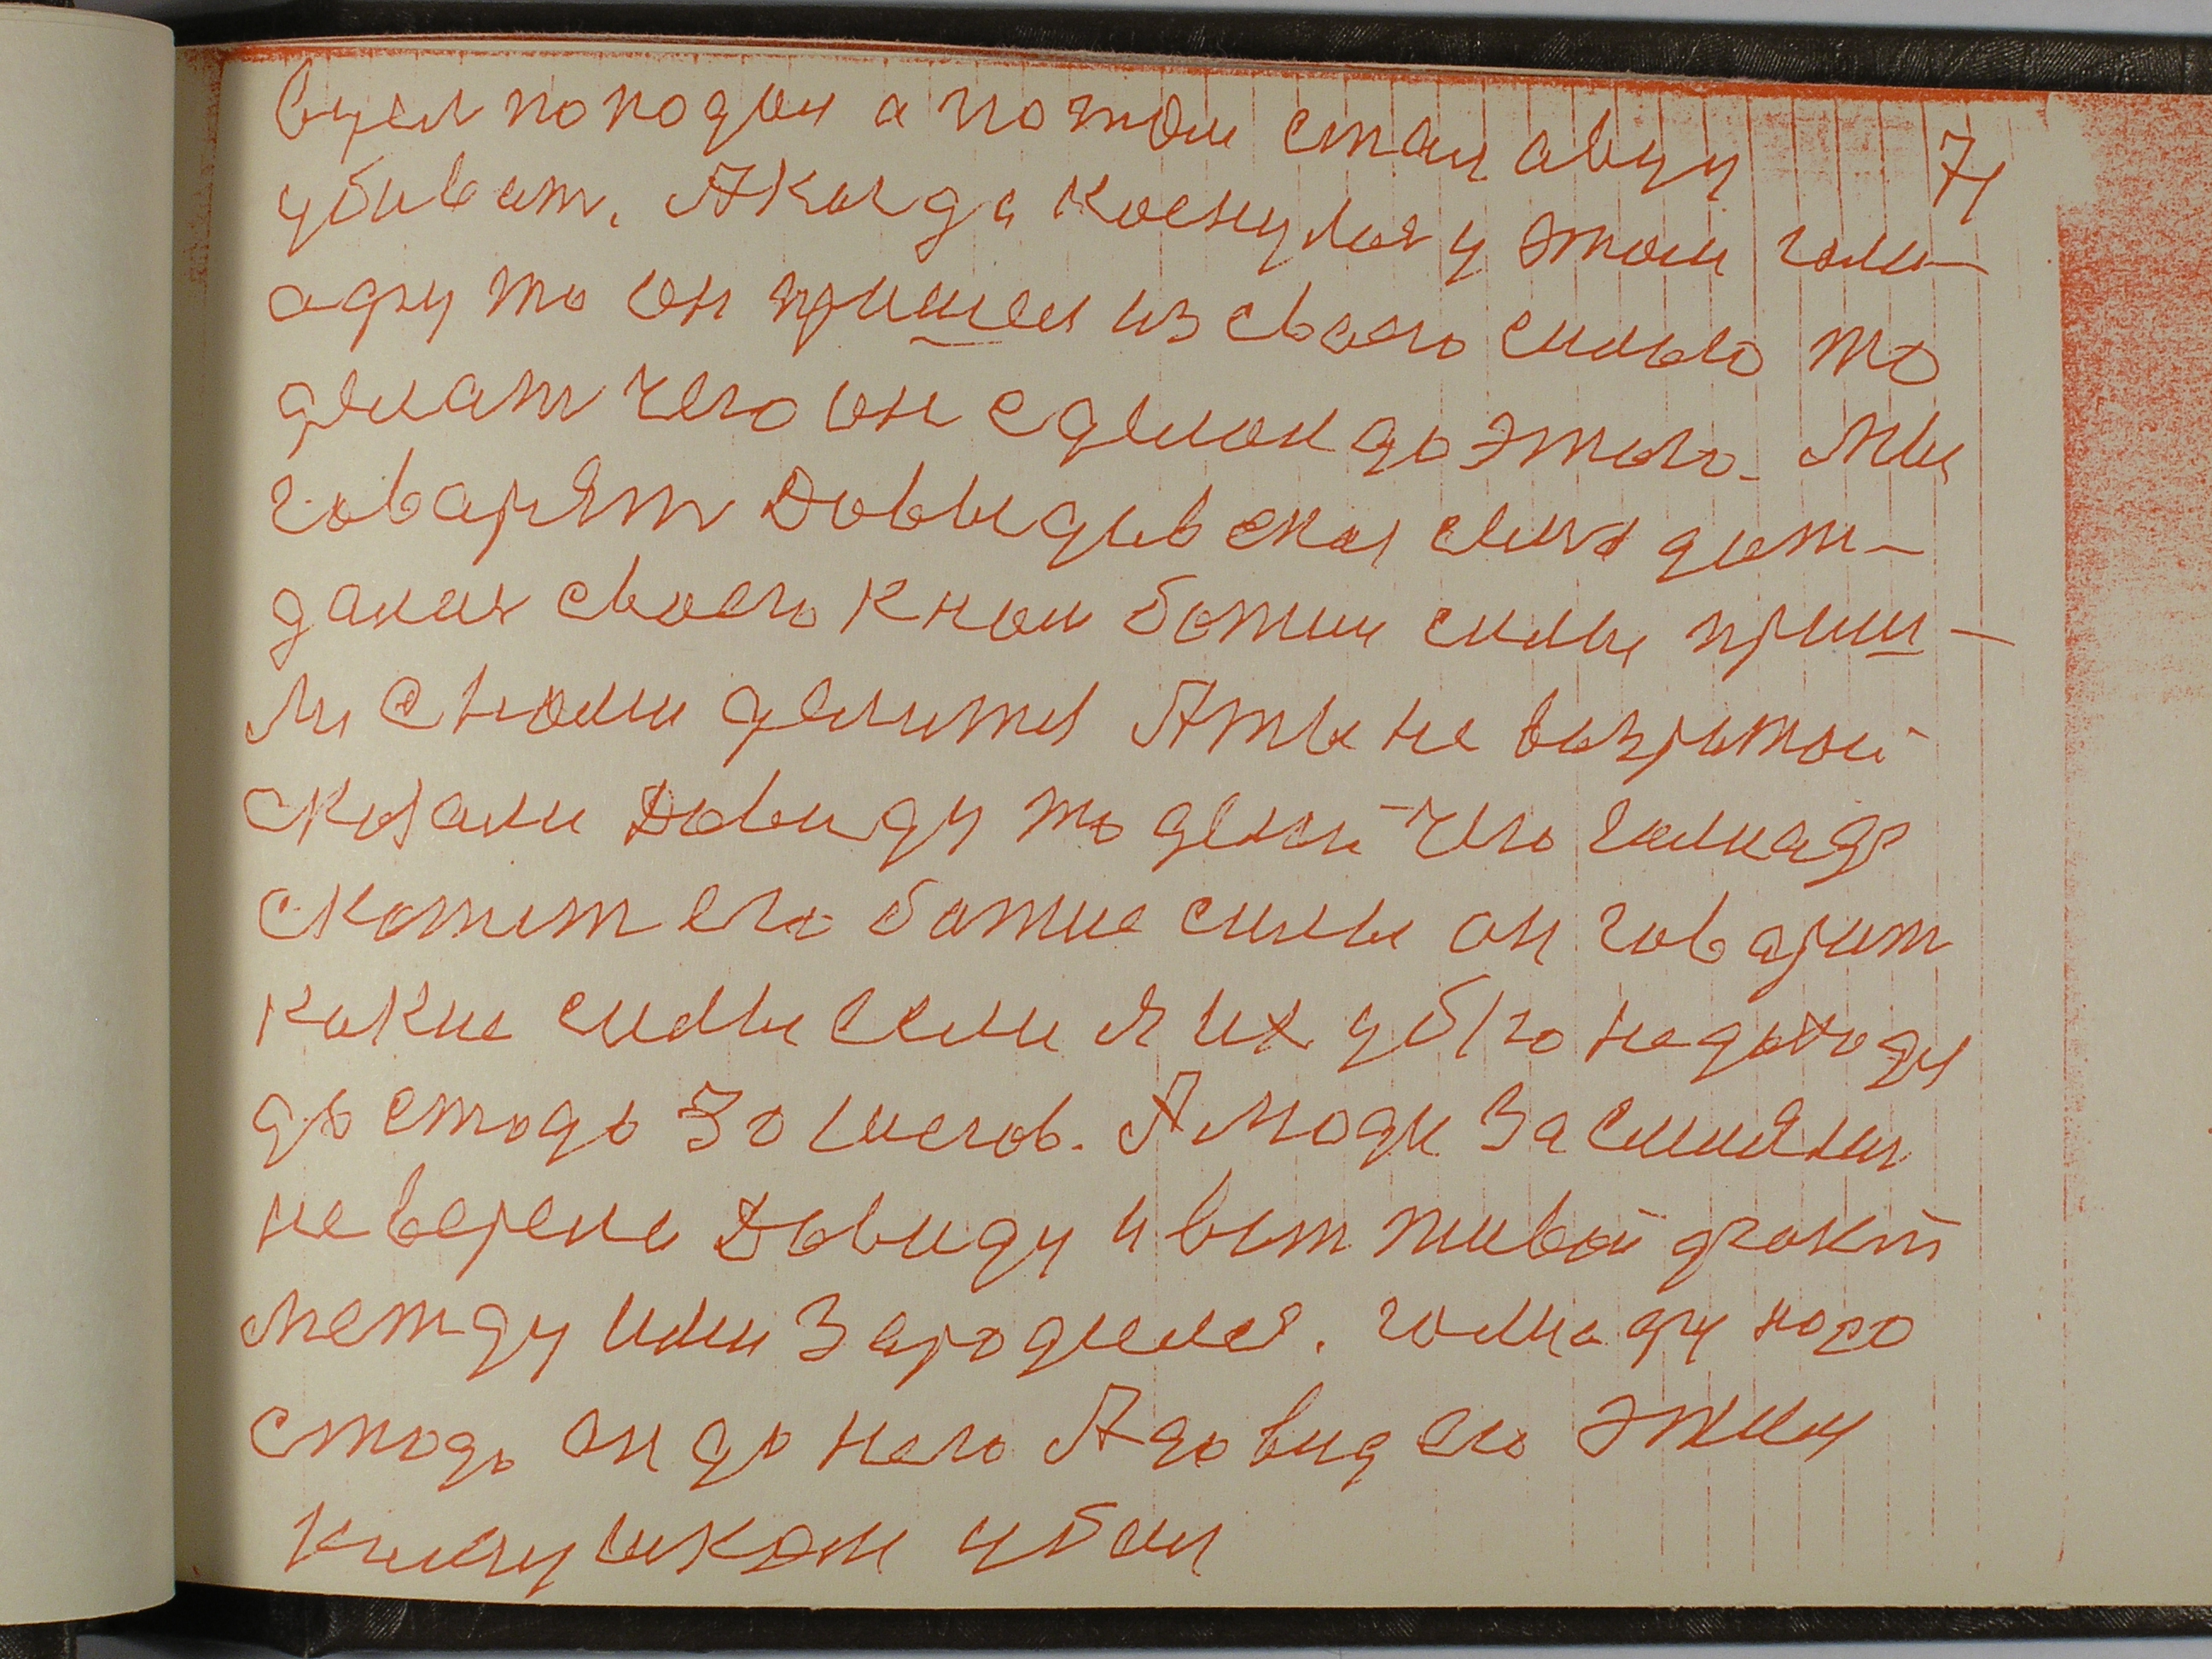 вцел поподон а потом стал авцу 71
убиват. А когда коснулос у этом гали-
афу то он пришел из своего силою то
делат чего он сделал до этого. Мы
говарят Довыдивская сила дит-
дакая своего к нам божии силы приш-
ли с нами делится А ты не вазрытой
сказали Довиду то дели чего галиаф
скажет его божие силы он говарит
какие силы если я их убю не даходя
до стодь 30 шегов. А люди засмияли
не верели Довиду и вот живой факт
между ими зародился. галиафу надо
стодь он до него А довид его этим
кницушком убил